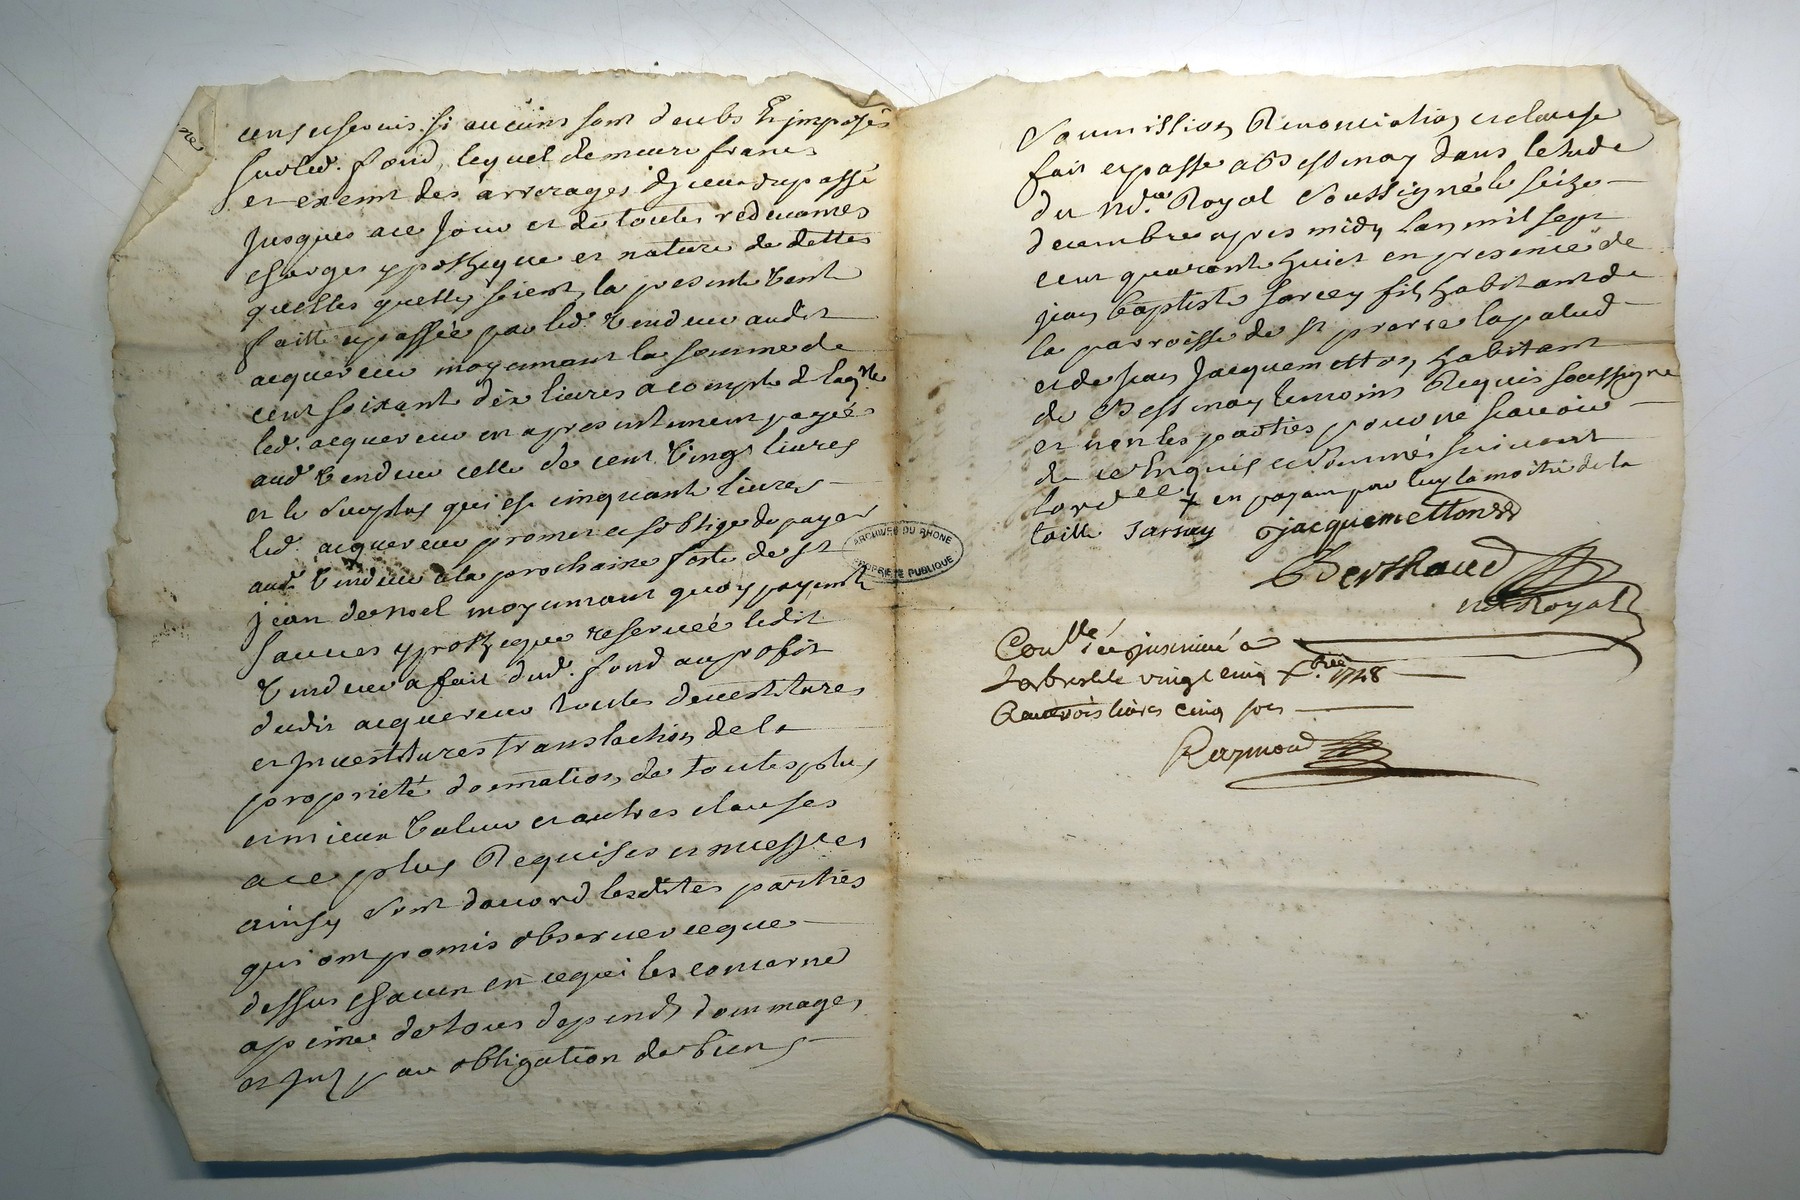 cens et servis si aucuns sont deubs et imposés
sur led. fond, lequel demeure francs
et exemt des arrerages d'jceux du passé
jusques a ce jour et de toutes redevances
charges ypotheque et nature de dettes
quelles quelles soient, la presente vente
faitte et passée par led. vendeur audit
acquereur moyennant la somme de
cent soixante dix livres a compte de laqlle
led. acquereur en a presentement payée
aud. vendeur celle de cent vingt livres
et le surplus qui est cinquante livres
led. acquereur promet et s'oblige de payer
aud. vendeur a la prochaine feste de st
jean de noel moyennant quoy payement
sauves ypotheque reservée ledit
vendeur a fait dud. fond au profit
dudit acquereur toutes devestitures
et jnvestitures translation de la
propriété donnation de toutes plus
et mieux value et autres clauses
a ce plus requises et necessres
ainsy sont d'acord lesdites parties
qui ont promis observer ce que
dessus chacun en ce qui les concerne
a peine de tous depends dommages
et jnts par obligation de biens
soumission renonciation et clause
fait et passé a Bessenay dans l'etude
du ndre Royal soussigné le seize
decembre apres midy lan mil sept
cent quarante huict en presence de
jean baptiste sarcey fils habitant de
la parroisse de st pierre lapalud
et de jean jacquemetton habitant
de Bessenay temoins requis soussigné
et non les parties pour ne savoir
de ce enquis et sommés suivant
lord ce x en payant par luy la moitié de la
taille sarsay jacquemetton
Berthaud
nre Royal
Conllé et jnsinué a
Larbresle vingt cinq xbre 1748
Reçu trois livres cinq sols
Raymond
ARCHIVES DU RHONE
PROPRIÉTÉ PUBLIQUE